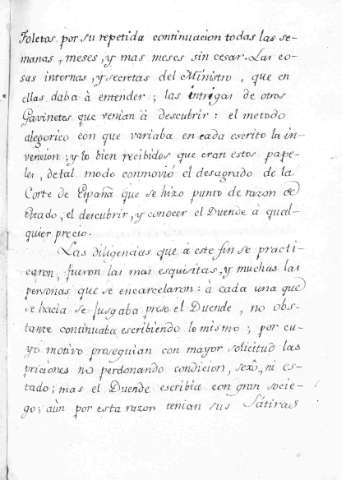 Foletos por su repetida continuacion todas las se-
manas, meses, y mas meses sin cesar. Las co-
sas internas, y secretas del Ministro, que en
ellas daba à entender; las intrigas de otros
Gavinetes que venian à descubrir: el metodo
alegorico con que variaba en cada escrito la in-
vencion; y lo bien recibidos que eran estos pape-
les, de tal modo conmovió el desagrado de la
Corte de España que se hizo punto de razon de
Estado, el descubrir, y conocer el Duende à qual-
quier precio.
Las diligencias que à este fin se practi-
caron, fueron las mas esquisitas, y muchas las
personas que se encarcelaron: à cada una que
se hacia se jusgaba preso el Duende, no obs-
tante continuaba escribiendo lo mismo; por cu-
yo motivo proseguian con mayor solicitud las
priciones no perdonando condicion, sexô, ni es-
tado; mas el Duende escribia con gran socie-
go; aùn por esta razon tenian sus Sátiras